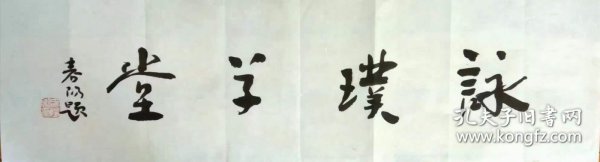 詠璞学堂
春 题
孔夫子旧书网
www.kongfz.com